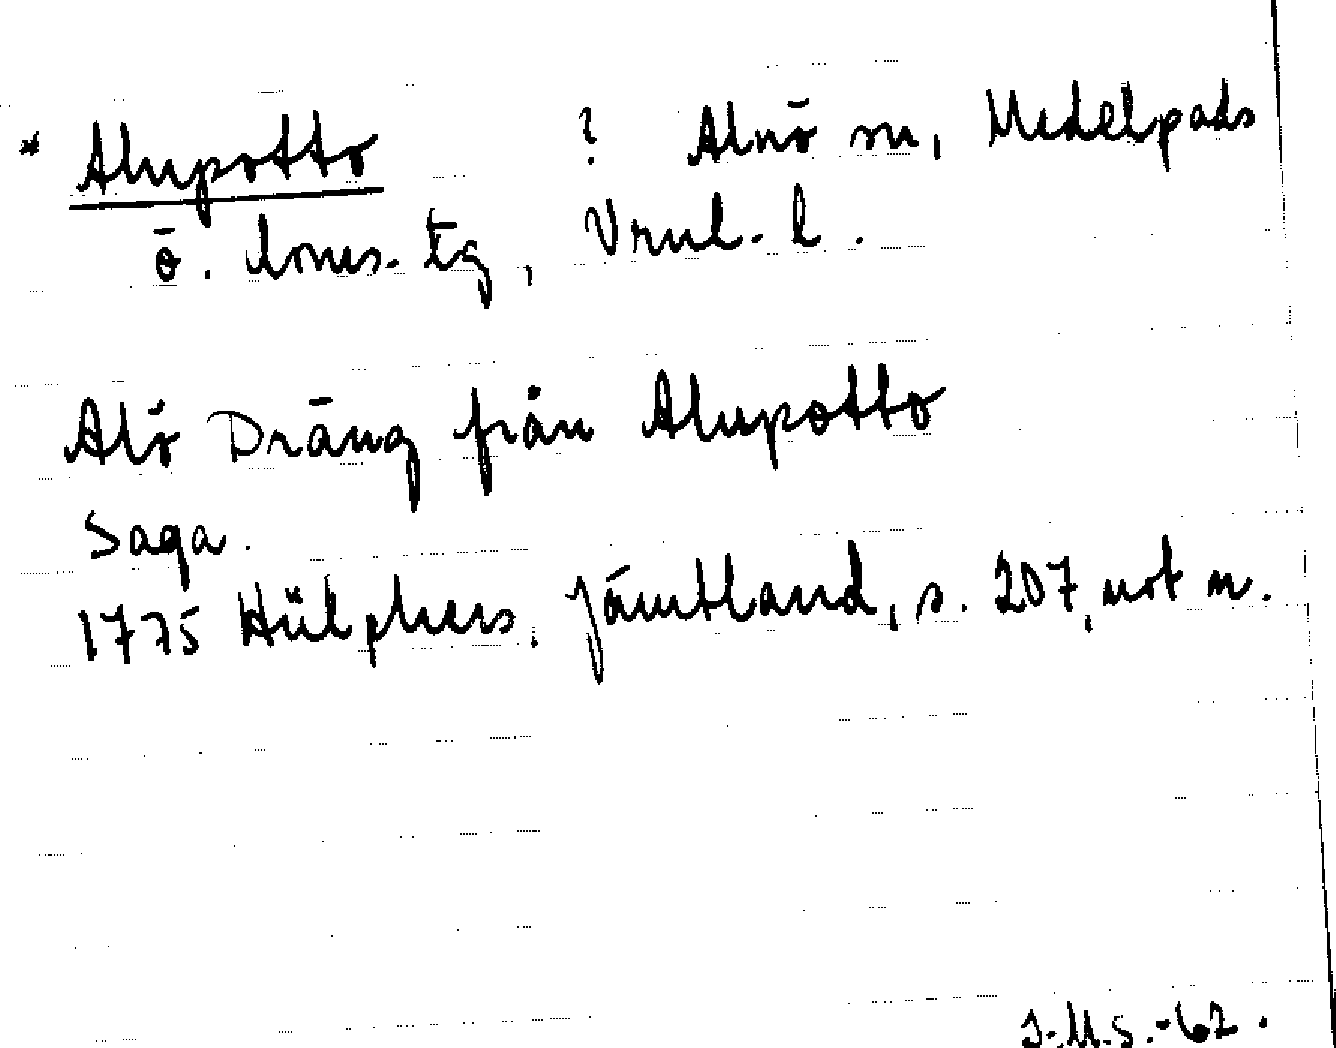 * Alupotto ? Alnö sn, Medelpads
ö. doms.-tg, Vnul. l.
Alö Dräng från Alupotto
Saga.
1775 Hülphers, Jämtland, s. 207, not m.
J.M.S.-62.